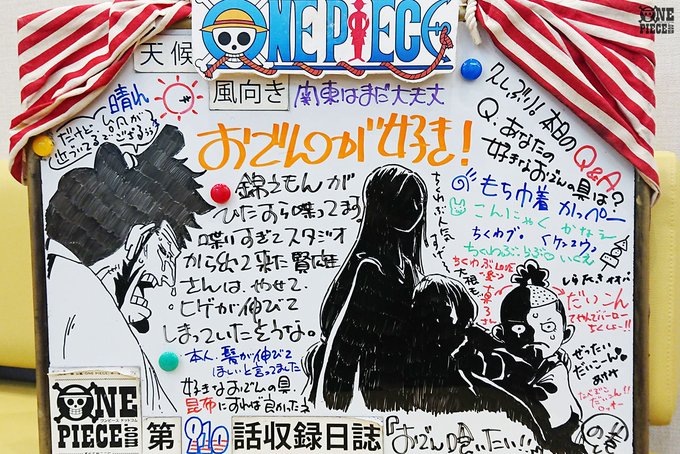 ONE PIECE
ONE PIECE
天候
晴れ
風向き
関東はまだ大丈夫
だけど、台風が
近づいてるでござろう?
おでんのが好き!
錦えもんが
ひたすら喋ってます
喋りすぎてスタジオ
から出て来た賢雄
さんは、やせて、
ヒゲが伸びて
しまっていたそうな。
本人、髪が伸びて
ほしいと言ってました
好きなおでんの具、
昆布にすれば良かったネ
久しぶり!本日のQ&A
Q.あなたの
好きなおでんの具は?
もち巾着 カッペー
こんにゃく かなえ
ちくわぶ。
ちくわぶ
しらたき
だいこん
てやんでバーロー
ちくしょー!!
ぜったい
だいこん
ONE
PIECE
第910話収録日誌
『おでん喰いたい!!』の巻